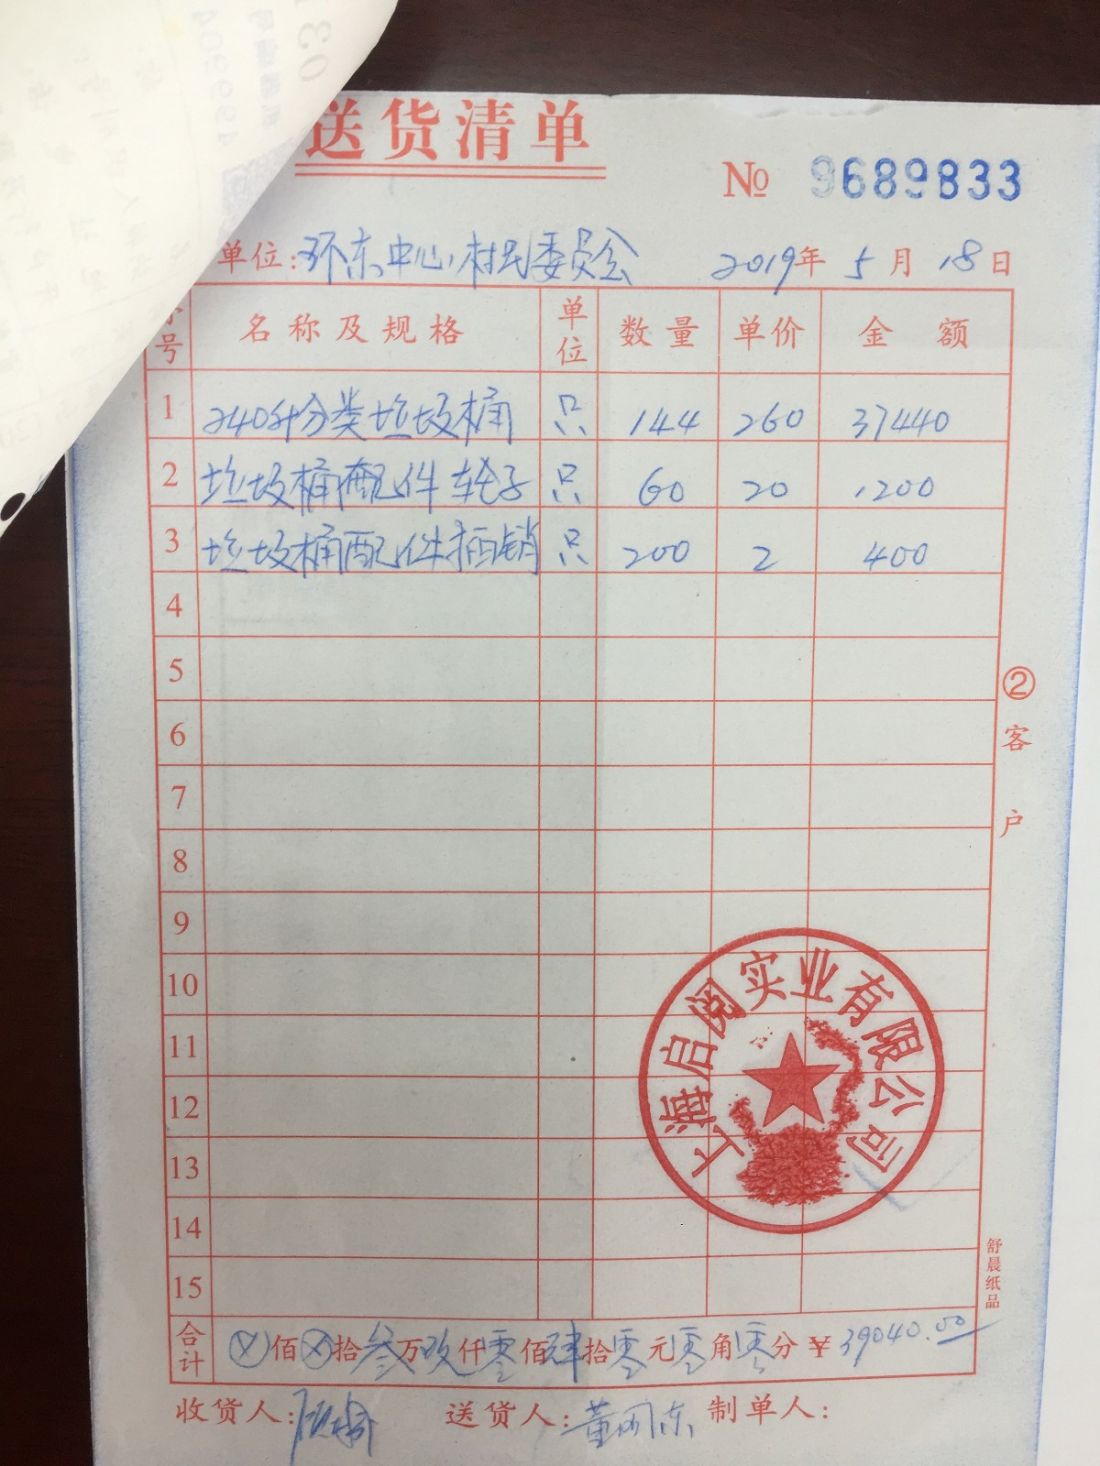 送货清单
№ 9689833
单位:环东中心村民委员会 2019年5月18日
号 名称及规格 单位 数量 单价 金额
1 240升分类垃圾桶 只 144 260 37440
2 垃圾桶配件轮子 只 60 20 1200
3 垃圾桶配件插销 只 200 2 400
4
5
6
7
8
9
10
11
12
13
14
15
②客户
上海启阅实业有限公司
舒晨纸品
合计 佰 拾叁万玖仟零佰肆拾零元零角零分 ¥39040.00
收货人: 送货人:董 东 制单人: